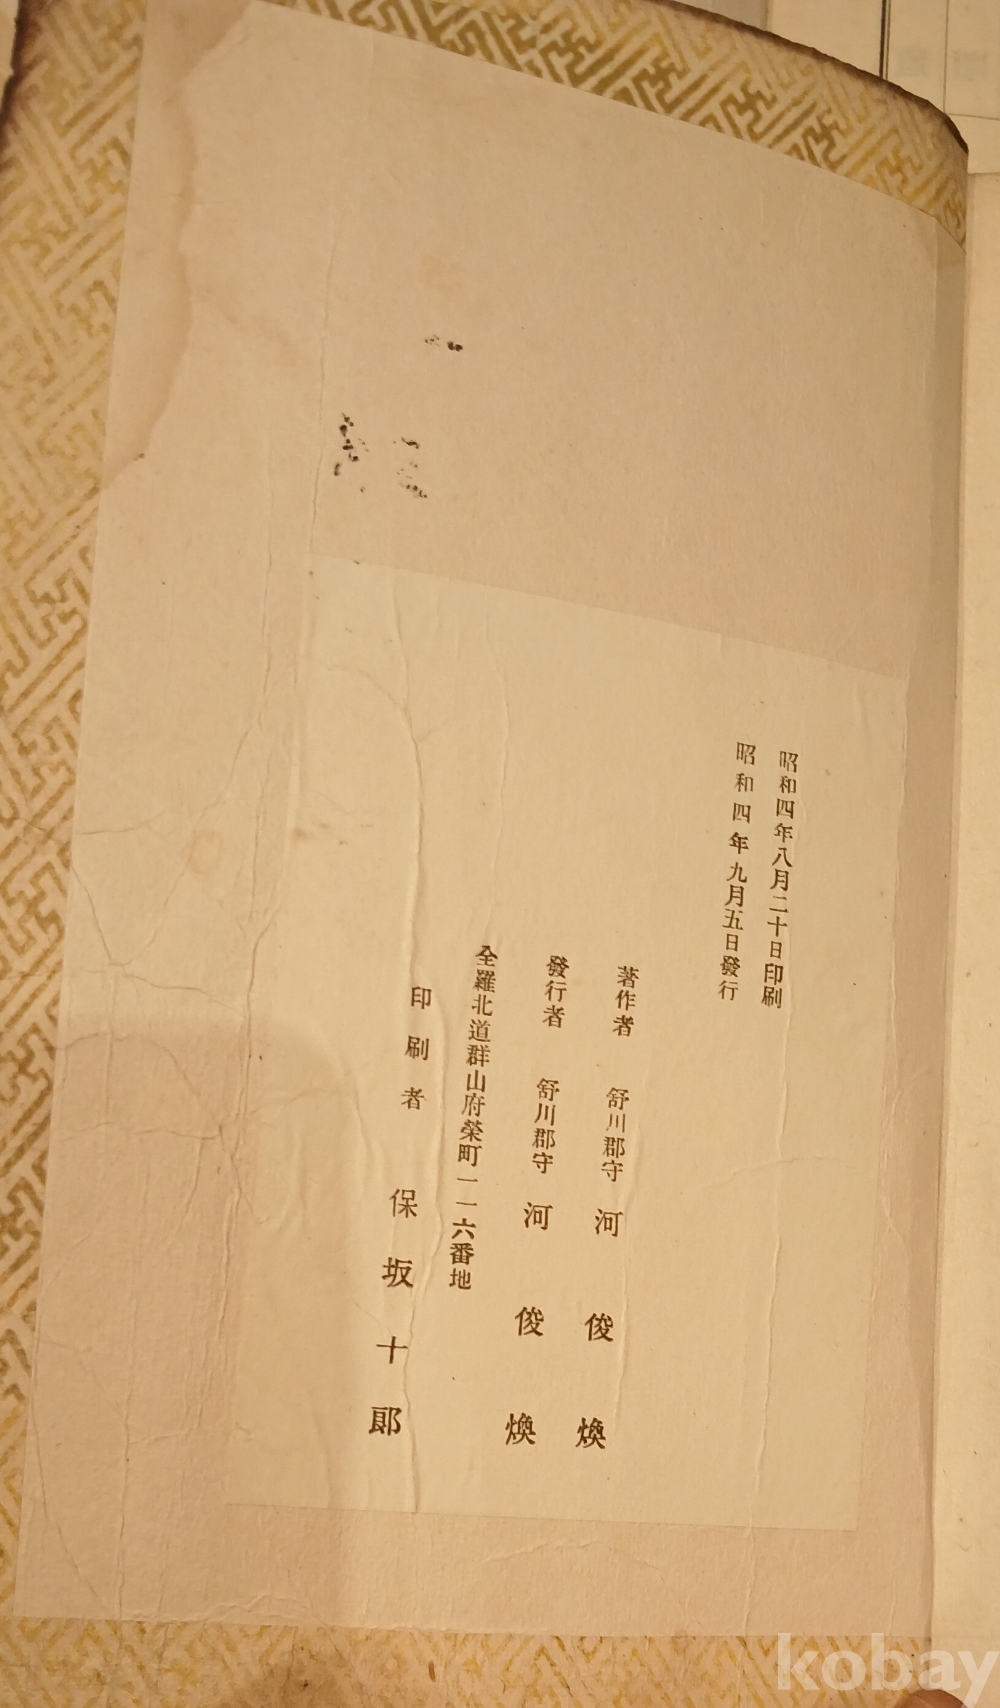 昭和四年八月二十日印刷
昭和四年九月五日發行
著作者 舒川郡守 河俊煥
發行者 舒川郡守 河俊煥
全羅北道群山府榮町一一六番地
印刷者 保坂十郞
kobay